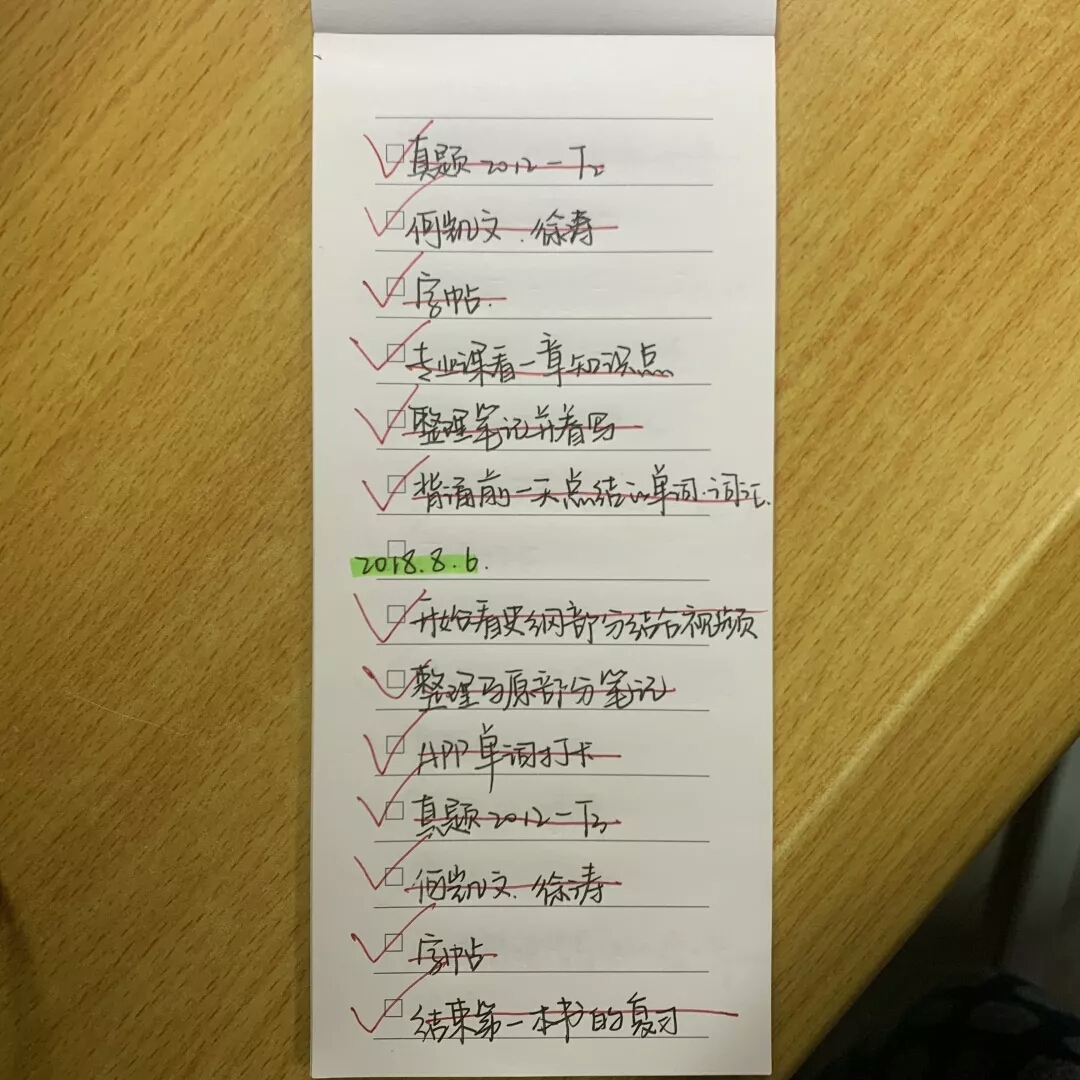 真题 2012-T2
何凯文.徐涛
字帖.
专业课看一章知识点
整理笔记并看写
背诵前一天总结的单词.词汇.
2018.8.6.
开始看史纲部分结合视频
整理马原部分笔记
APP单词打卡
真题 2012-T3
何凯文.徐涛
字帖
结束第一本书的复习